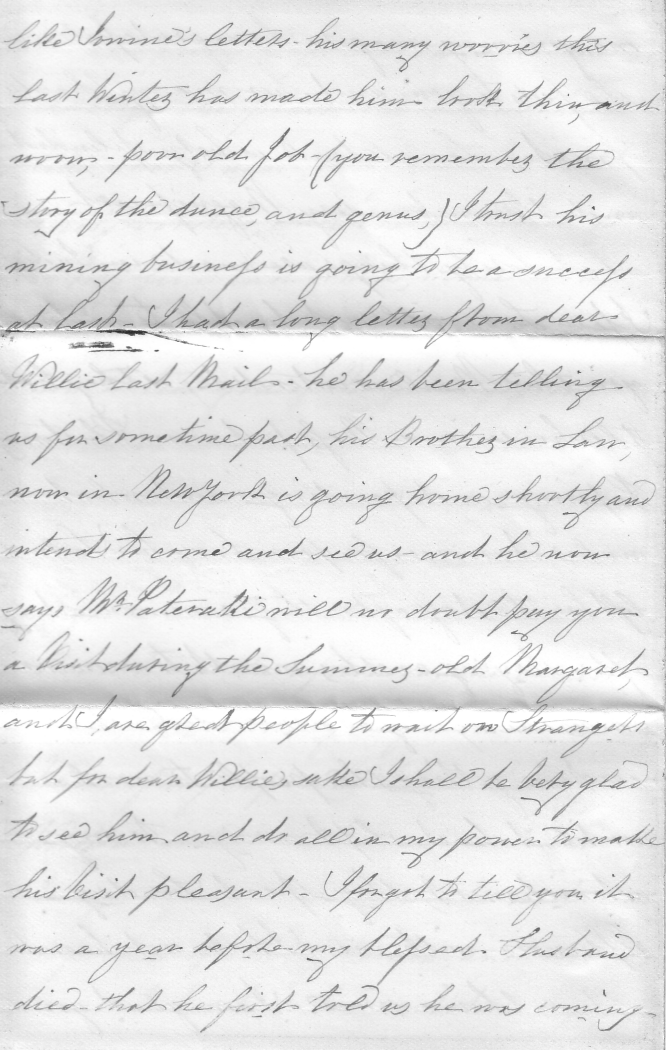 like Irvine's letters - his many worries this
last Winter has made him look thin, and
worn, - poor old Job - (you remember the
story of the dunce, and genus,) I trust his
mining business is going to be a success
at last - I had a long letter from dear
Willie last Mail - he has been telling
us for sometime past, his Brother in Law,
now in New York is going home shortly and
intends to come and see us - and he now
says Mr. Pateraki will no doubt pay you
a Visit during the Summer - old Margaret,
and I, are great people to wait on Strangers
but for dear Willies sake I shall be very glad
to see him and do all in my power to make
his Visit pleasant - I forgot to tell you it
was a year before my blessed Husband
died - that he first told us he was coming -